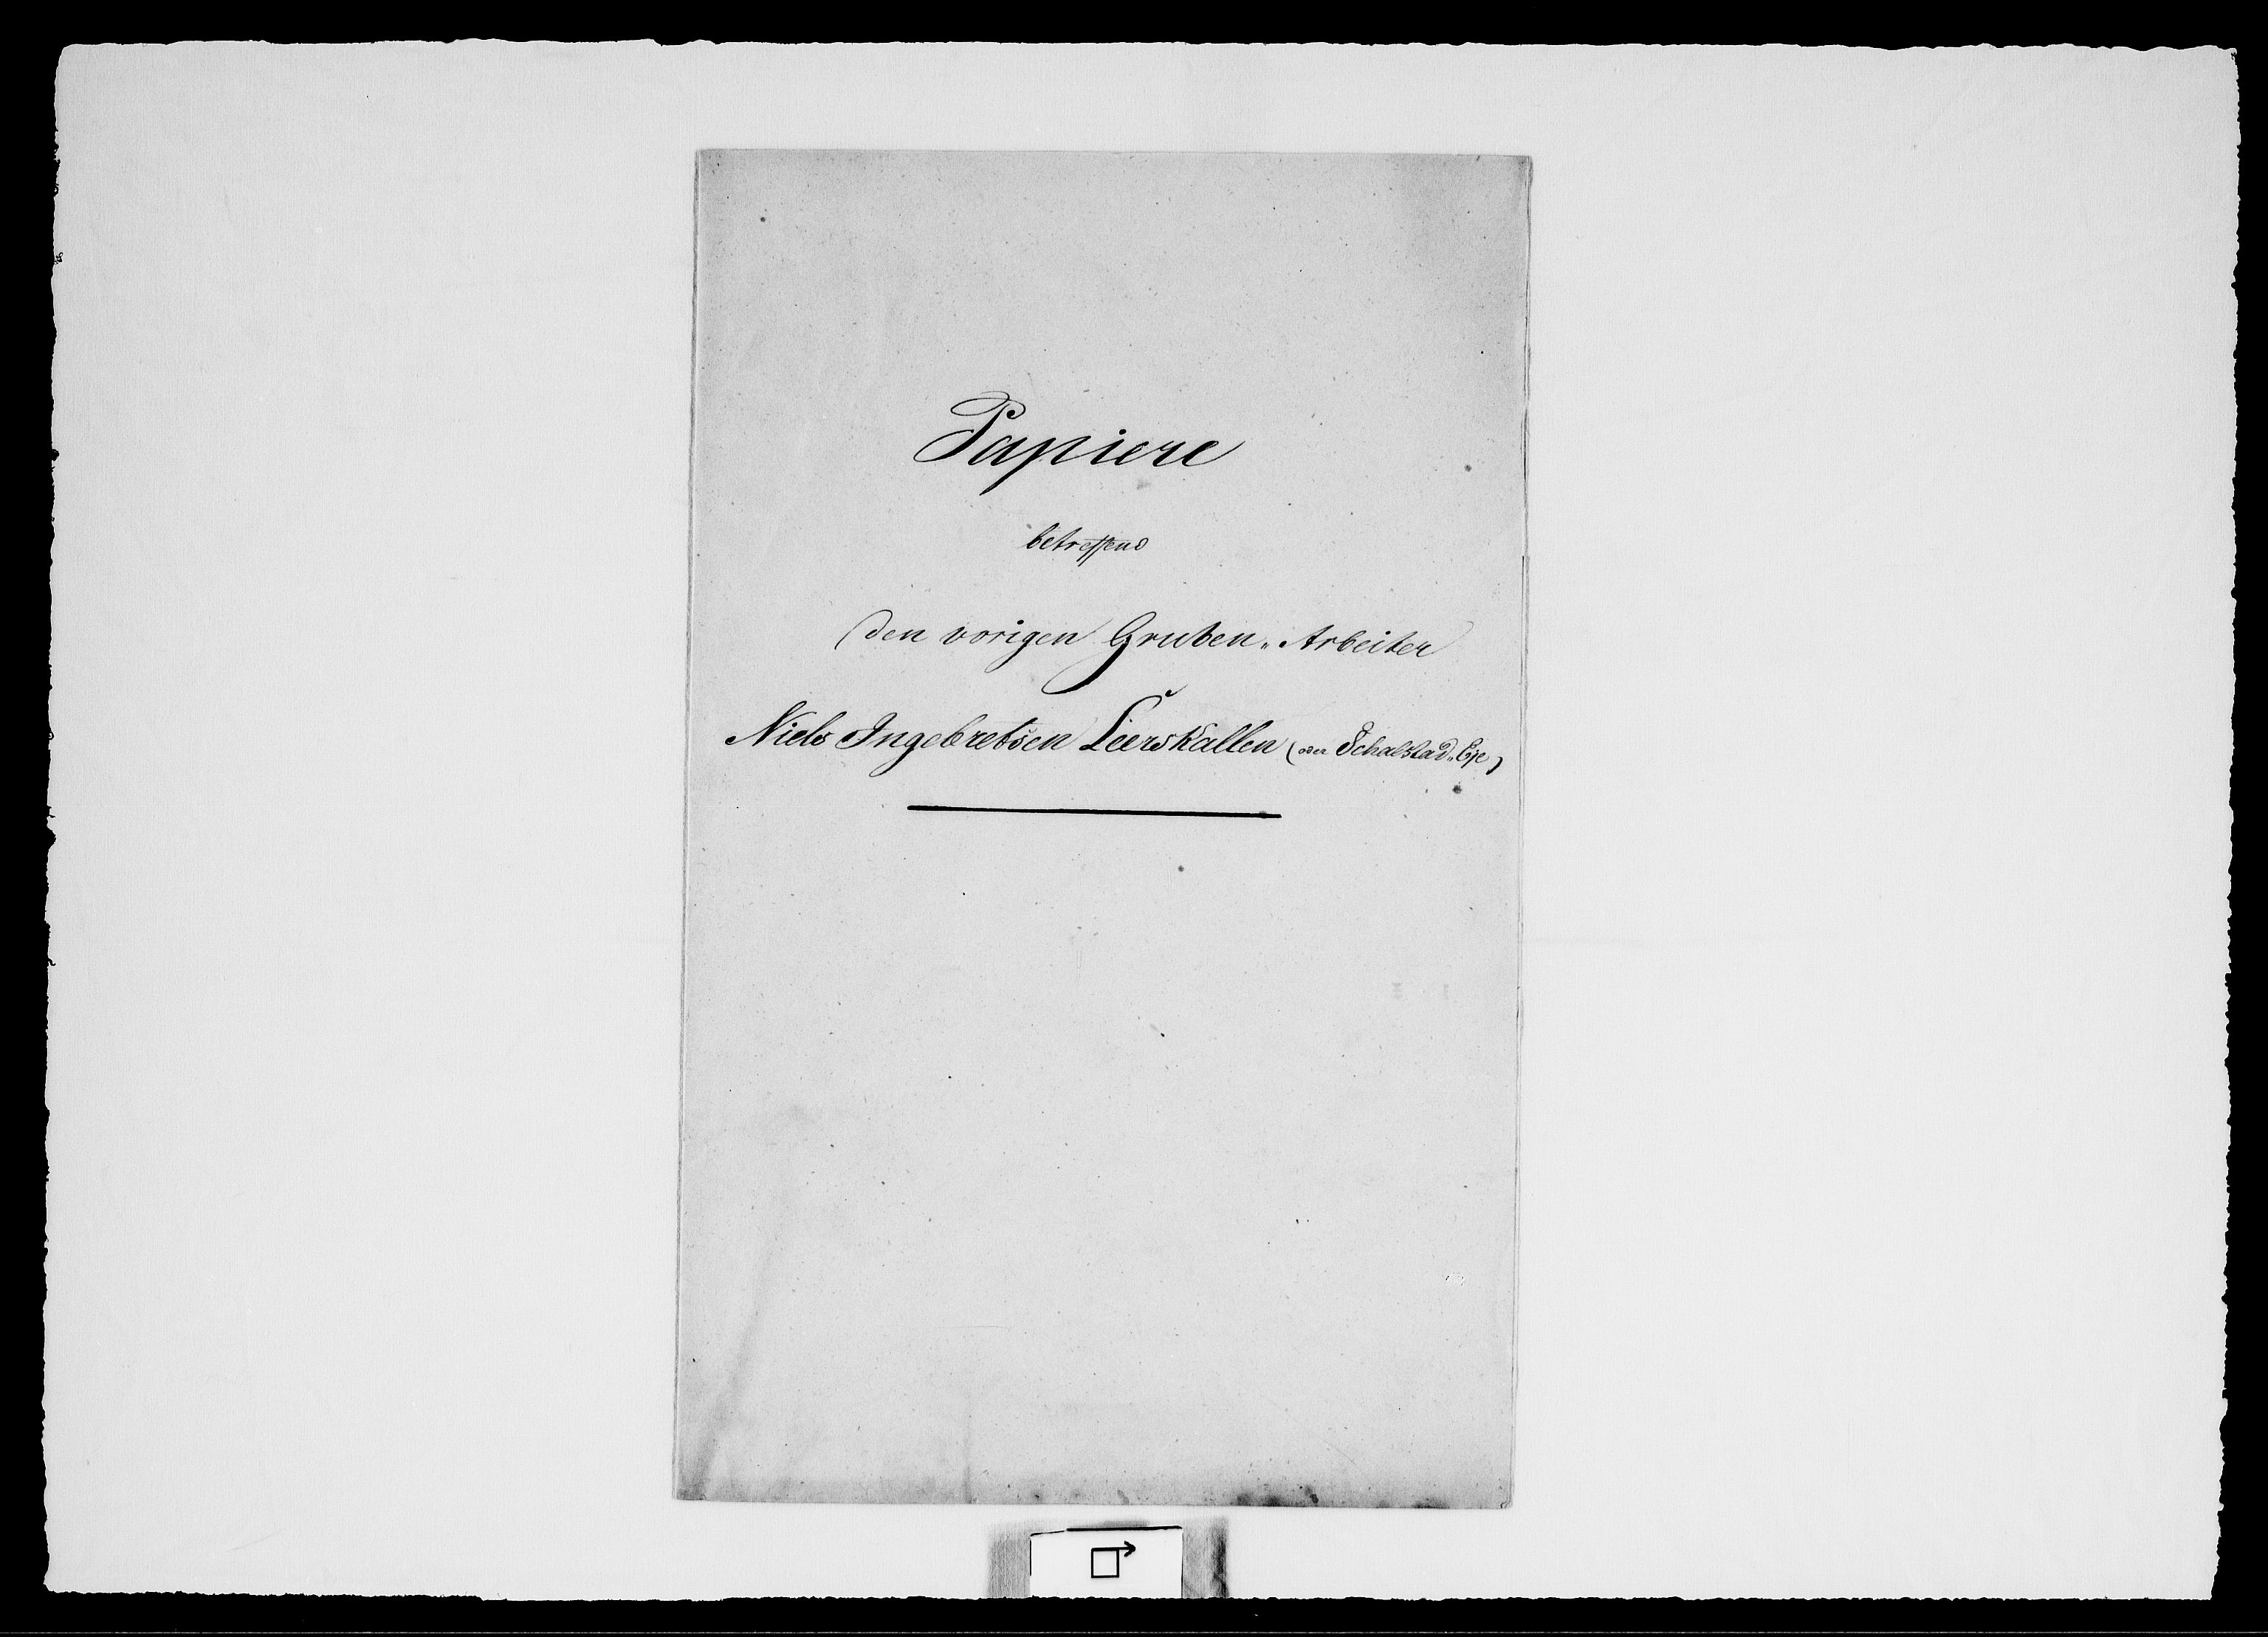 Papiere
betreffend
den vorigen Gruben„Arbeiter
Niels Ingebretsen Leerskallen (oder Schalstad„Eje)